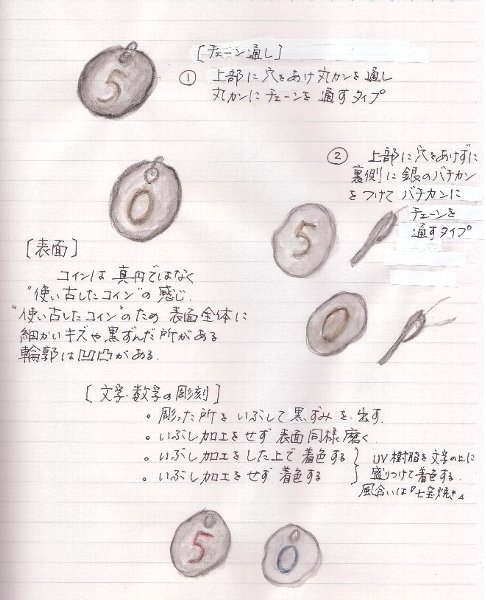 5
[チェーン通し]
① 上部に穴をあけ丸カンを通し
丸カンにチェーンを通すタイプ
0
② 上部に穴をあけずに
裏側に銀のバチカン
をつけて バチカンに
チェーンを
通すタイプ
5
0
[表面]
コインは真円ではなく
"使い古したコイン"の感じ.
"使い古したコイン"のため 表面全体に
細かいキズや黒ずんだ所がある
輪郭は凹凸がある.
[文字・数字の彫刻]
・彫った所をいぶして黒ずみを出す.
・いぶし加工をせず 表面同様磨く
・いぶし加工をした上で着色する
・いぶし加工をせず 着色する
UV樹脂を文字の上に
盛りつけて着色する.
風合いは『七宝焼き』
5
0